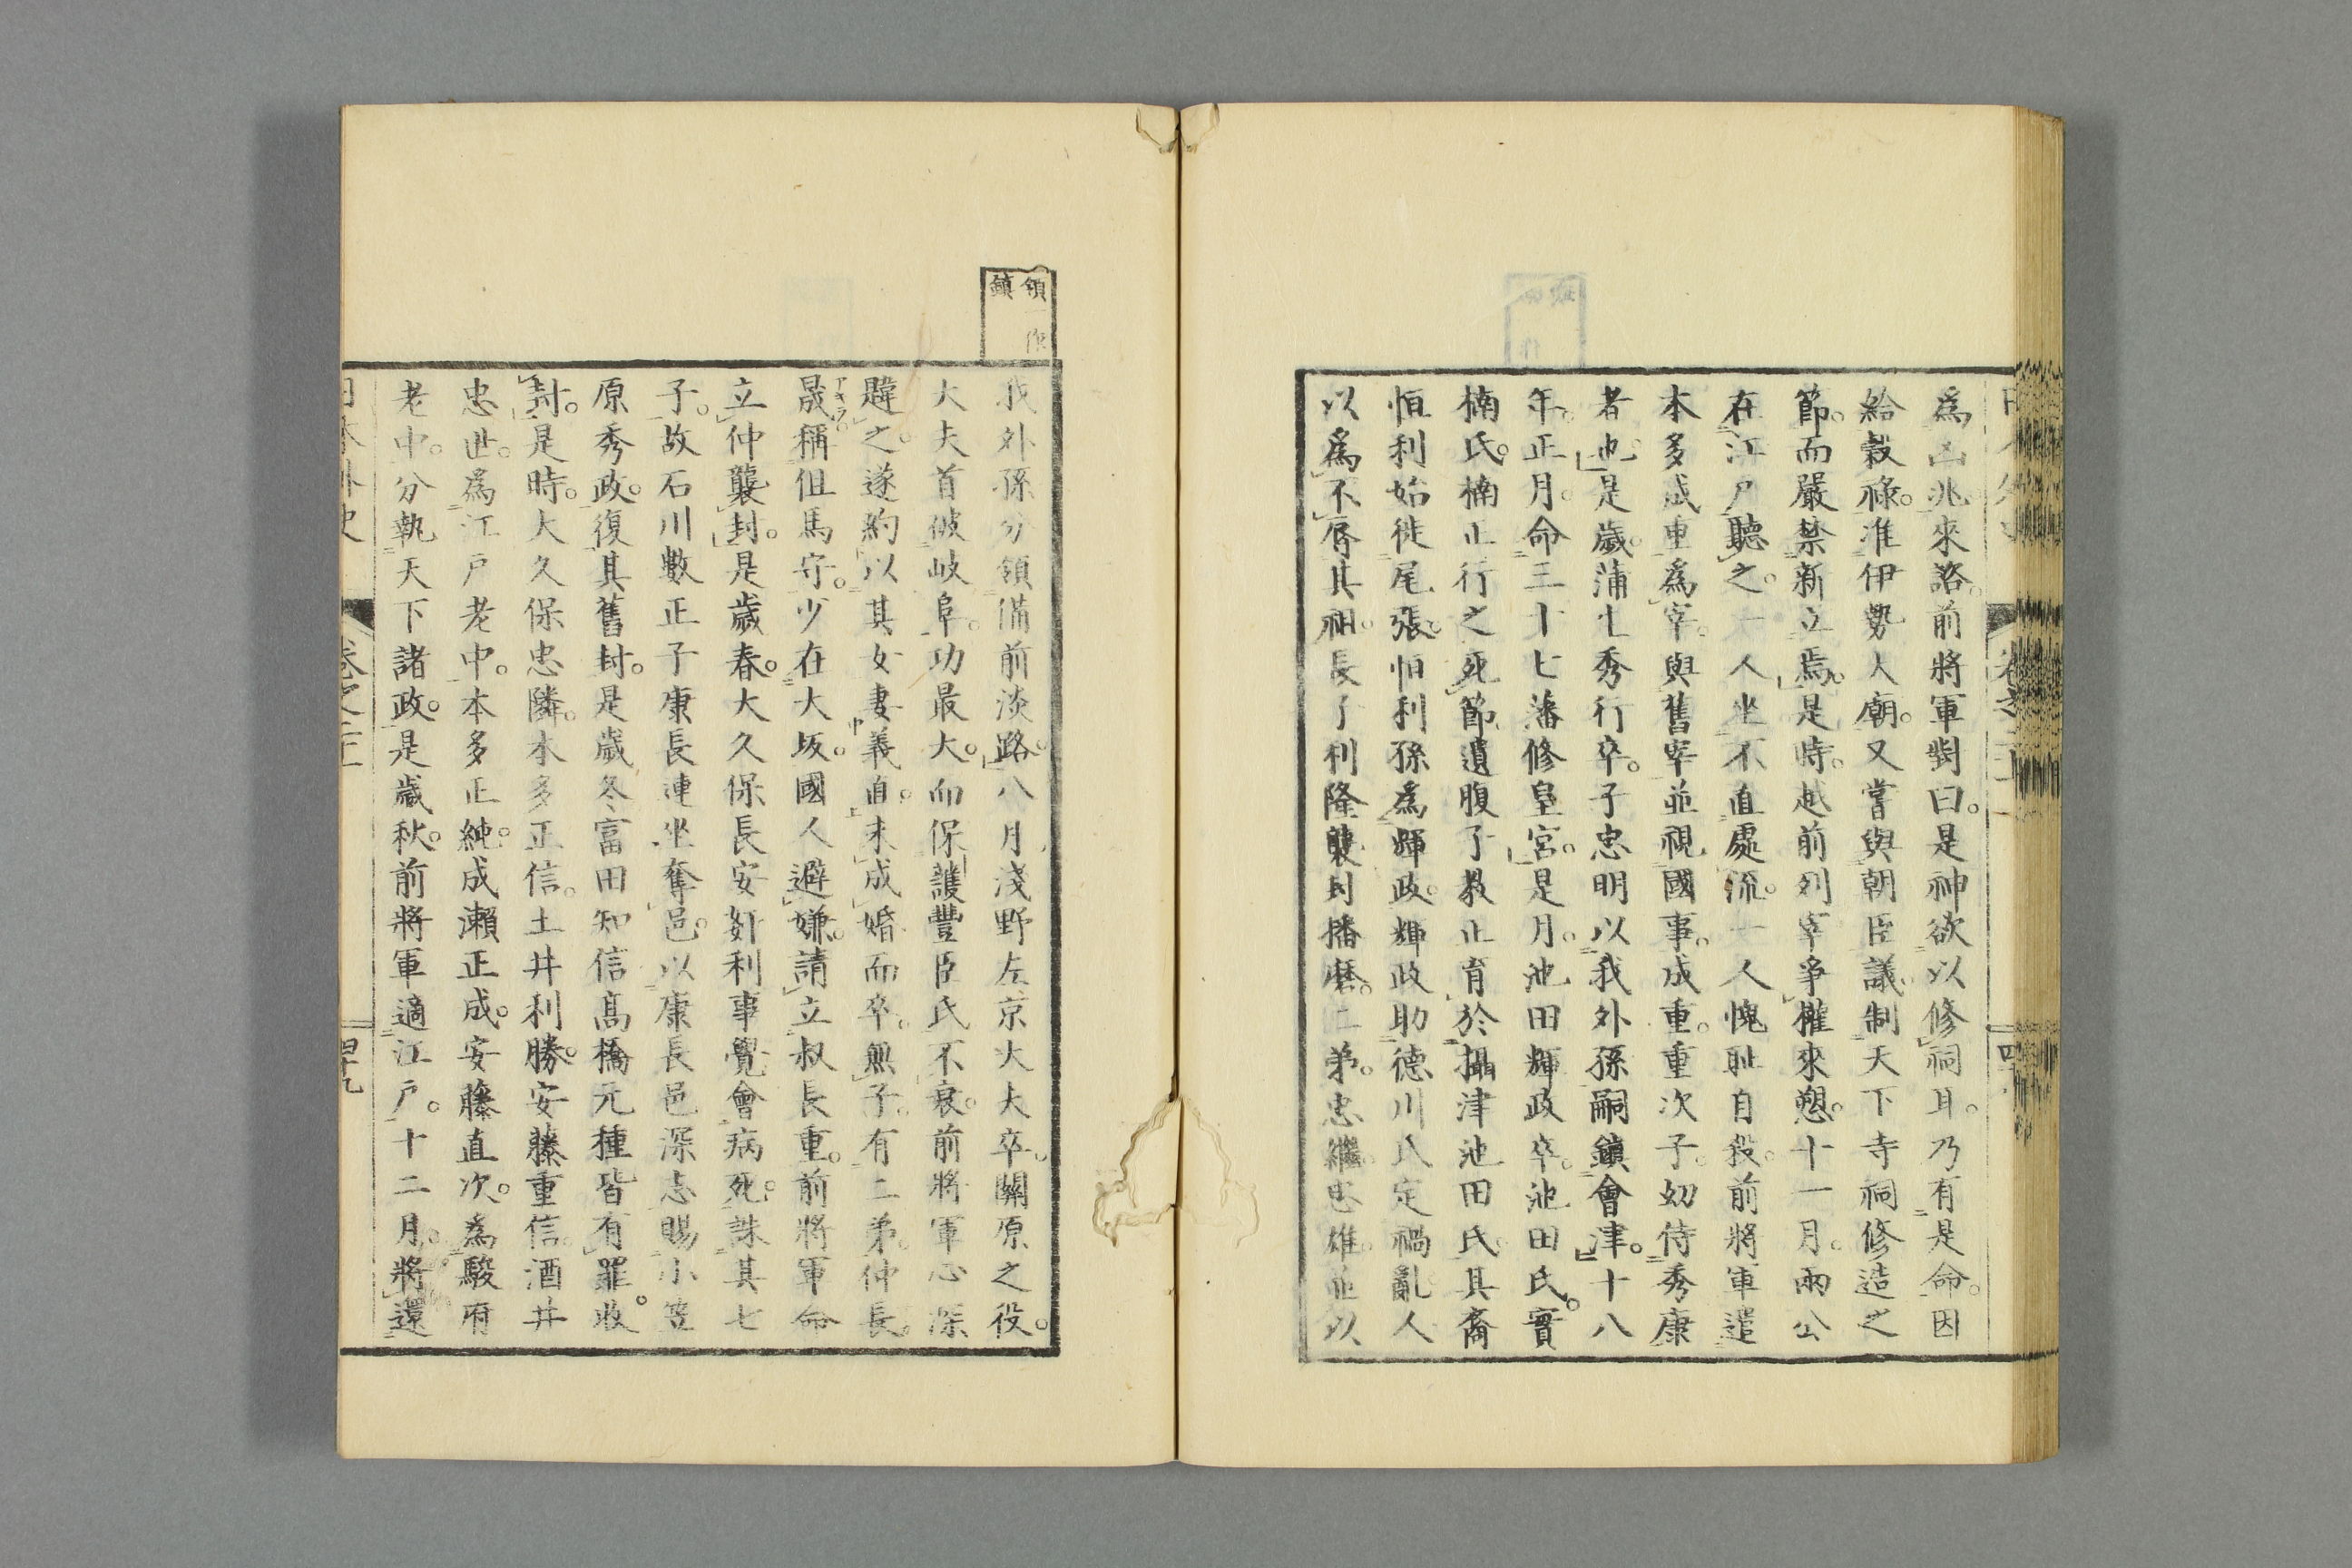 為凶兆來諮。前將軍對曰。是神欲以修祠耳。乃有是命。因
給穀祿。准伊勢大廟。又嘗與朝臣議。制天下寺祠修造之
節。而嚴禁新立焉。是時。越前列宰爭權來愬。十一月。兩公
在江戶聽之。一人坐不直處流。一人愧恥自殺。前將軍遣
本多成重為宰。與舊宰並視國事。成重。重次子。幼侍秀康
者也。是歲。蒲生秀行卒。子忠明以我外孫嗣鎮會津。十八
年。正月。命三十七藩修皇宮。是月。池田輝政卒。池田氏。實
楠氏。楠正行之死節。遺腹子教正育於攝津池田氏。其裔
恒利始徙尾張。恒利孫為輝政。輝政助德川氏定禍亂。人
以為不辱其祖。長子利隆襲封播磨。二弟。忠繼。忠雄。並以
領一作
鎮
我外孫分領備前淡路。八月淺野左京大夫卒。關原之役。
大夫首破岐阜。功最大。而保護豐臣氏不衰。前將軍心深
韙之。遂約以其女妻義直。未成婚而卒。無子。有二弟。仲長
晟稱但馬守。少在大坂。國人避嫌。請立叔長重。前將軍命
アキラ
立仲襲封。是歲春。大久保長安姦利事覺。會病死。誅其七
子。故石川數正子康長連坐奪邑。以康長邑深志賜小笠
原秀政。復其舊封。是歲冬。富田知信高橋元種皆有罪。收
封。是時。大久保忠隣。本多正信。土井利勝。安藤重信。酒井
忠世。為江戶老中。本多正純。成瀨正成。安藤直次。為駿府
老中。分執天下諸政。是歲秋。前將軍適江戶。十二月。將還
日本外史
卷之二十一
四十九